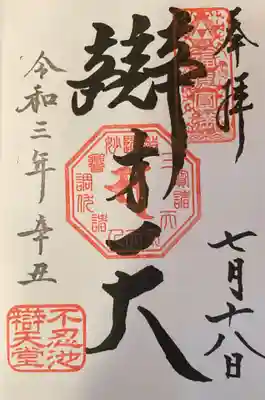 奉拝
七月十八日
辯才天
令和三年辛丑
不忍池
辯天堂